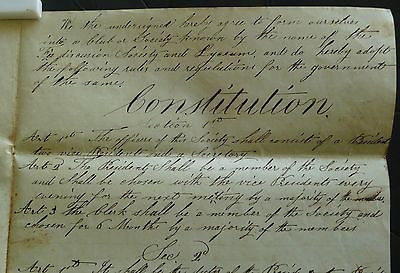 We the undersigned hereby agree to form ourselves
into a Club or Society known by the name of the
Discussion Society and Lyceum, and do hereby adopt
the following rules and regulations for the government
of the same.
Constitution.
Section 1st
Art 1st The officers of the Society shall consist of a President
two vice Presidents and a Secretary
Art 2 The Presidents Shall be a member of the Society
and Shall be chosen with the vice Presidents every
evening for the next meeting by a majority of the
Art. 3 the Clerk shall be a member of the Society and
chosen for 6 Months by a majority of the members
Sec. 2d
Art 1st It shall be the duties of the